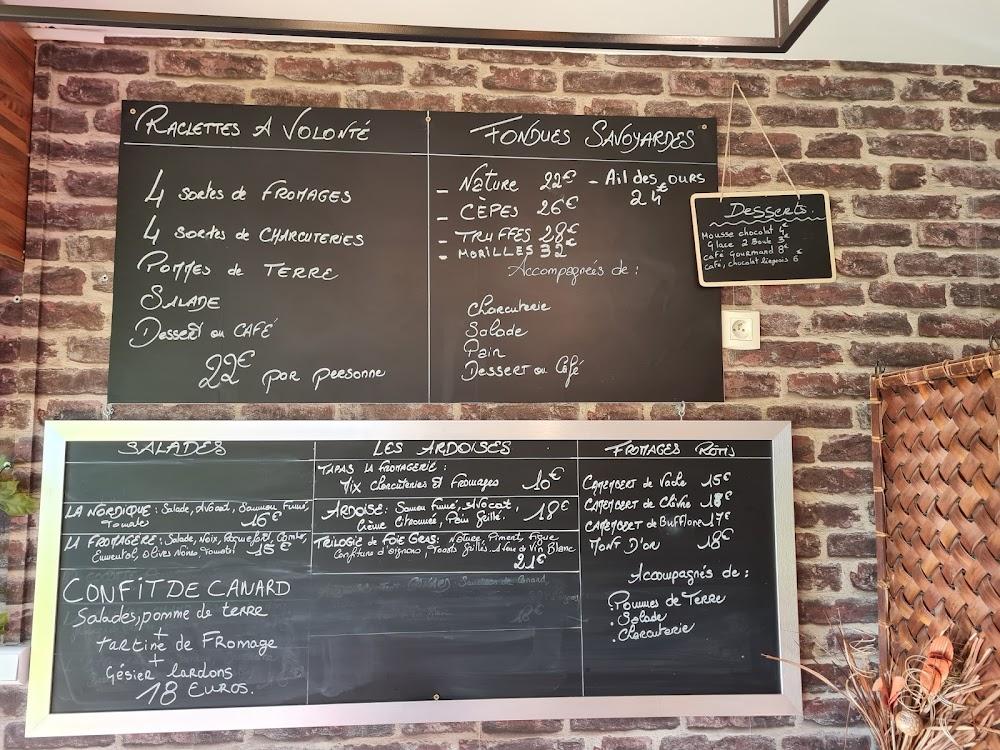 RACLETTES A VOLONTÉ
4 SORTES de FROMAGES
4 SORTES de CHARCUTERIES
POMMES de TERRE
SALADE
Dessert ou CAFÉ
22€ par personne
FONDUES SAVOYARDES
- NATURE 22€
- CÈPES 26€
- TRUFFES 28€
- MORILLES 32€
- Ail des OURS
24€
Accompagnées de :
Charcuterie
Salade
Pain
Dessert ou Café
Desserts.
Mousse chocolat 4€
Glace 2 Boule 3€
Café Gourmand 8€
Café, chocolat liegeois 6€
SALADES
LA NORDIQUE : Salade, Avocat, Saumon Fumé,
Tomate 16€
LA FROMAGERE : Salade, Noix, Roquefort, Comté,
Emmental, olives Noires Tomate 15€
CONFIT DE CANARD
Salades, pomme de terre
+
tartine de Fromage
+
Gésier lardons
18 EUROS.
LES ARDOISES
TAPAS LA FROMAGERIE :
Mix charcuteries et Fromages 10€
ARDOISE : Saumon Fumé, AVOCAT,
Crème Citronnée, Pain Grillé. 18€
TRILOGIE de FOIE GRAS : Nature, Piment, Figue
Confiture d'oignons Toasts Grillés 1 Verre de Vin Blanc
21€
FROMAGES RÔTIS
CAMEMBERT de Vache 15€
CAMEMBERT de Chèvre 18€
CAMEMBERT de Bufflone 17€
MONT D'OR 18€
Accompagnés de :
. Pommes de Terre
. Salade
. Charcuterie